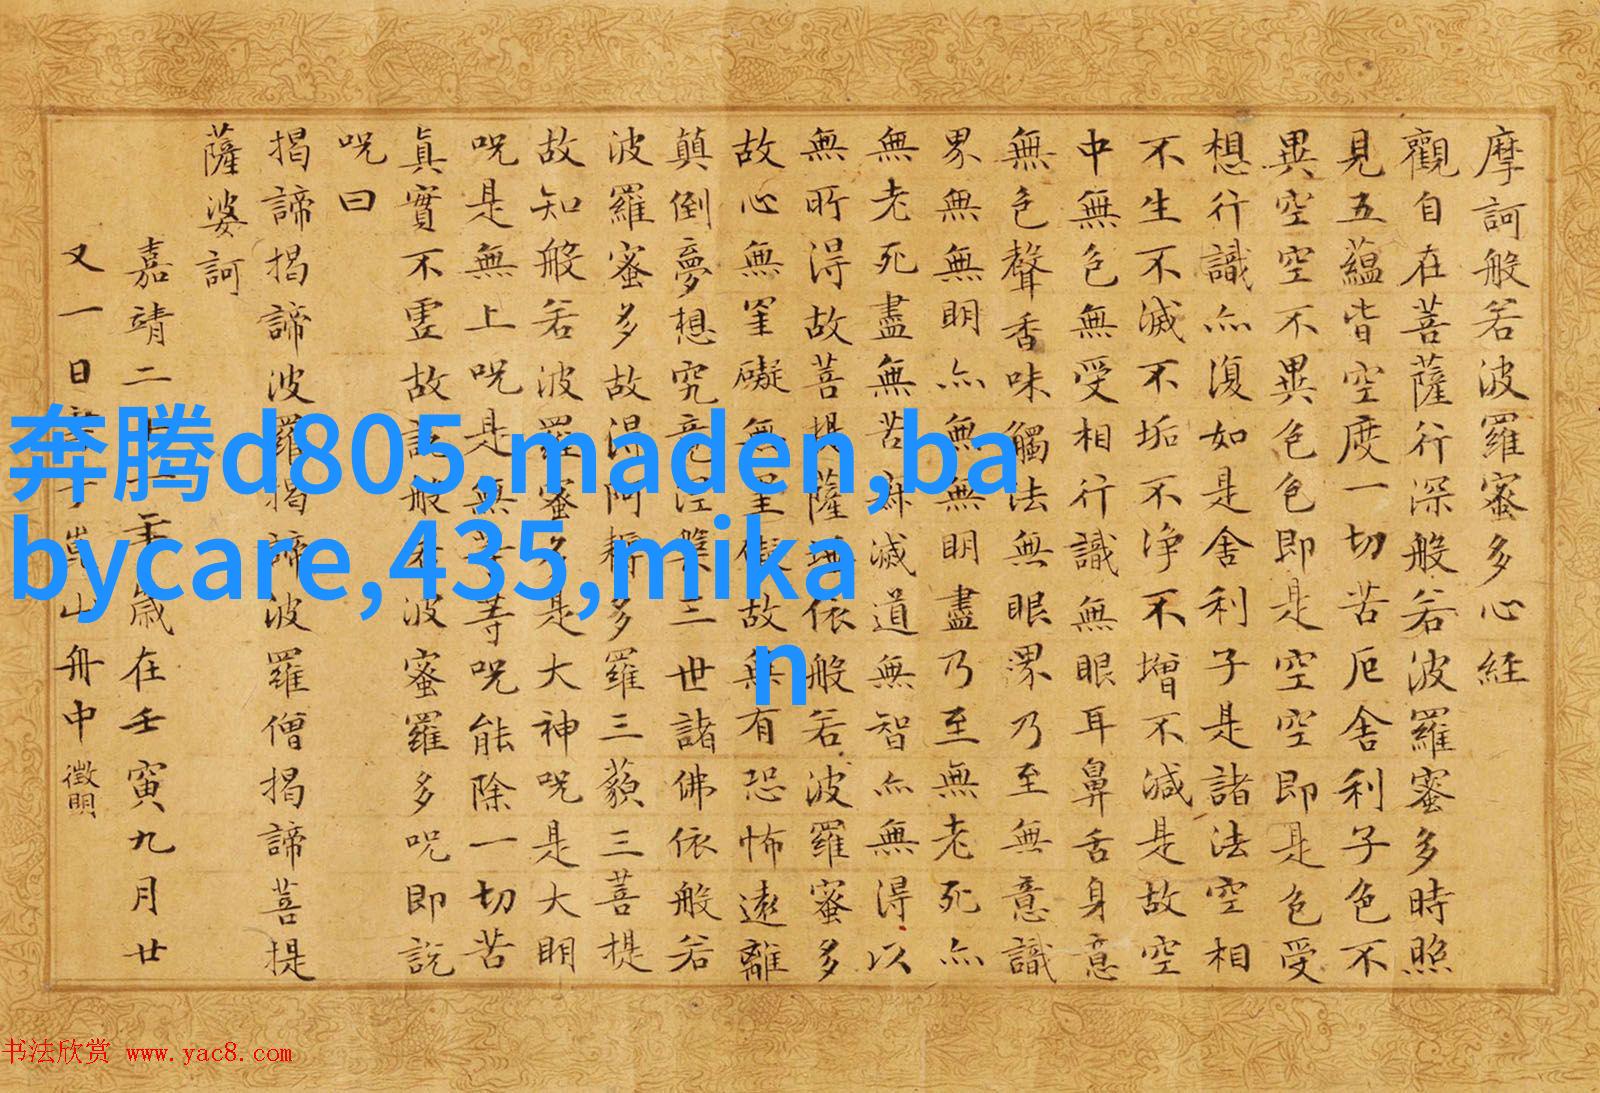 摩訶般若波羅蜜多心經
觀自在菩薩行深般若波羅蜜多時照
見五蘊皆空度一切苦厄舍利子色不
異空空不異色色即是空空即是色受
想行識亦復如是舍利子是諸法空相
不生不滅不垢不淨不增不減是故空
中無色無受相行識無眼耳鼻舌身意
無色聲香味觸法無眼界乃至無意識
界無無明亦無無明盡乃至無老死亦
無老死盡無苦滅道無智亦無得以
無所得故菩提薩埵依般若波羅蜜多
故心無罣礙無罣礙故無有恐怖遠離
顛倒夢想究竟涅槃三世諸佛依般若
波羅蜜多故得阿耨多羅三藐三菩提
故知般若波羅蜜多是大神呪是大明
呪是無上呪是無等等呪能除一切苦
真實不虛故說般若波蜜羅多呪即說
呪曰
揭諦揭諦波羅揭諦波羅僧揭諦菩提
薩婆訶
嘉靖二十一年歲在壬寅九月廿
又一日書于崑山舟中 徵明
奔腾d805,maden,ba
bycare,435,mika
n
书法欣赏 www.yac8.com